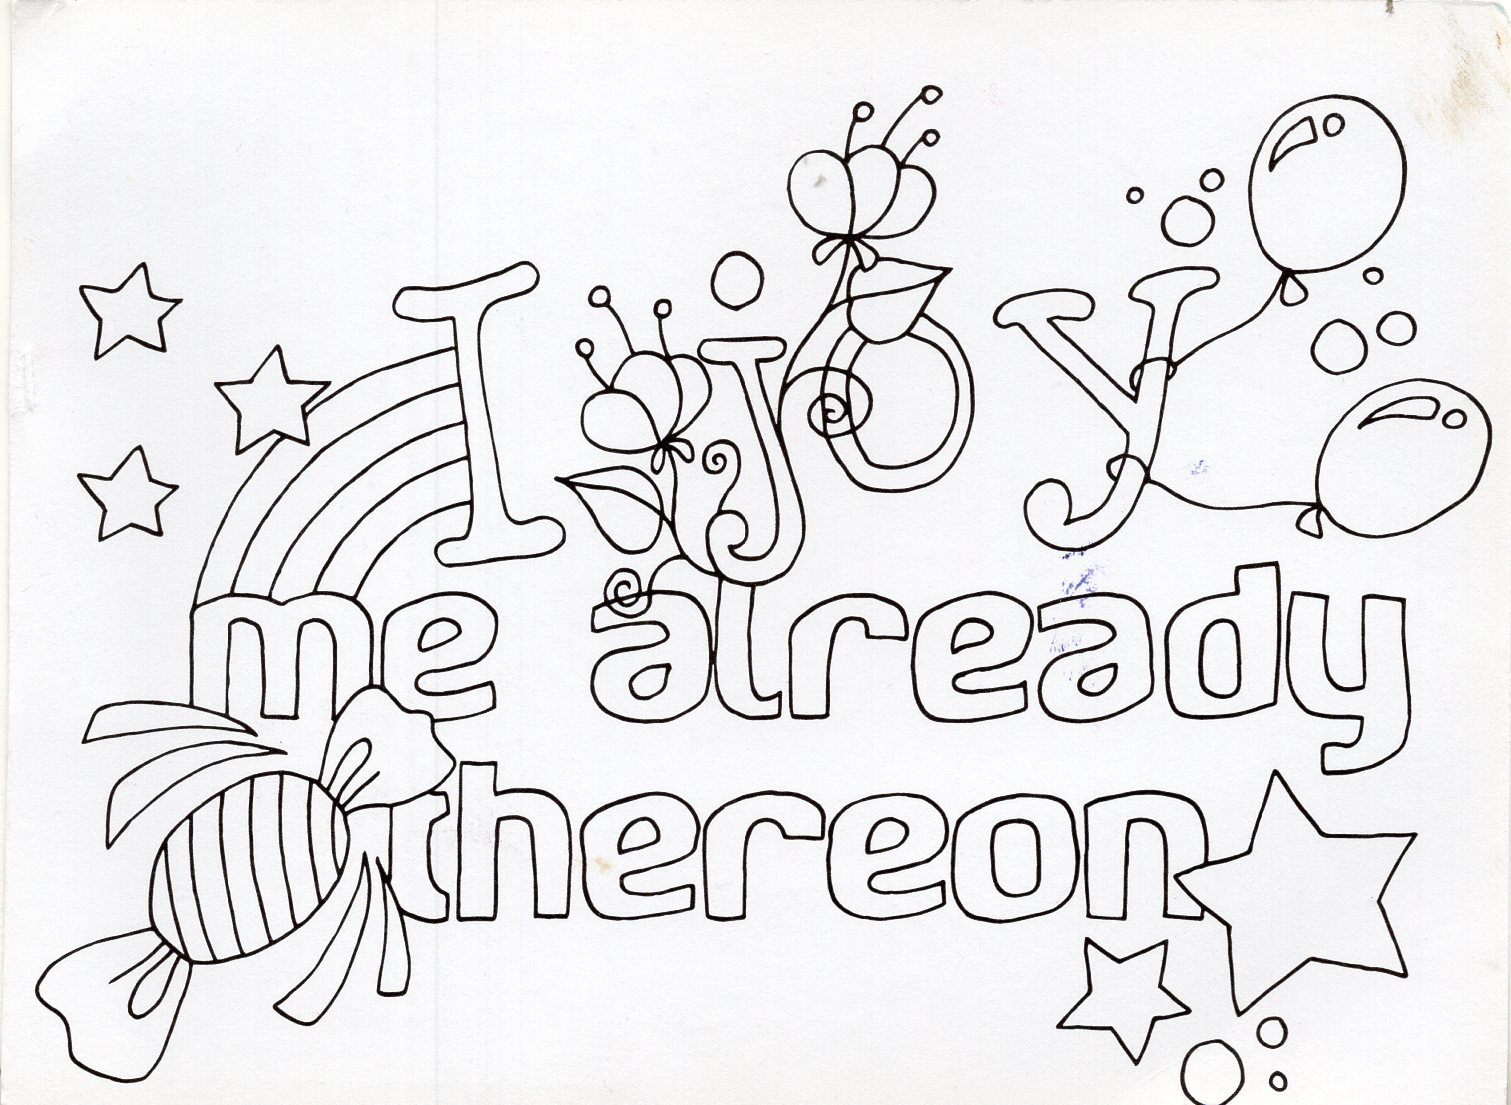 I joy
me already
thereon